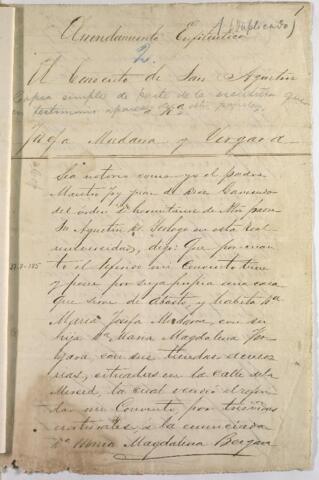 1
(Duplicado)
Arrendamiento Enfiteutico
2.
El Convento de San Agustin
Copia simple de parte de la escritura que
en testimonio aparece en otro papeles
a Da
Josefa Madana y Vergara
Sea notorio como yo el padre
Maestro Fray Juan de Dios
del órden de hermitaños de Ntro padre
Sn Agustin de Teologo en esta Real
universidad, digo: Que por cuan-
to el mi Convento tiene
y posee por suya propia una casa
que sirve de Abasto, y habita Da
Maria Josefa Madana, con su
hija Da Maria Magdalena Ver-
gara, con sus tiendas acceso-
rias, situadas en la calle de la
Merced, la cual vendió el
mi Convento, por tres vidas
naturales, a la enunciada
Da Maria Magdalena Bergara